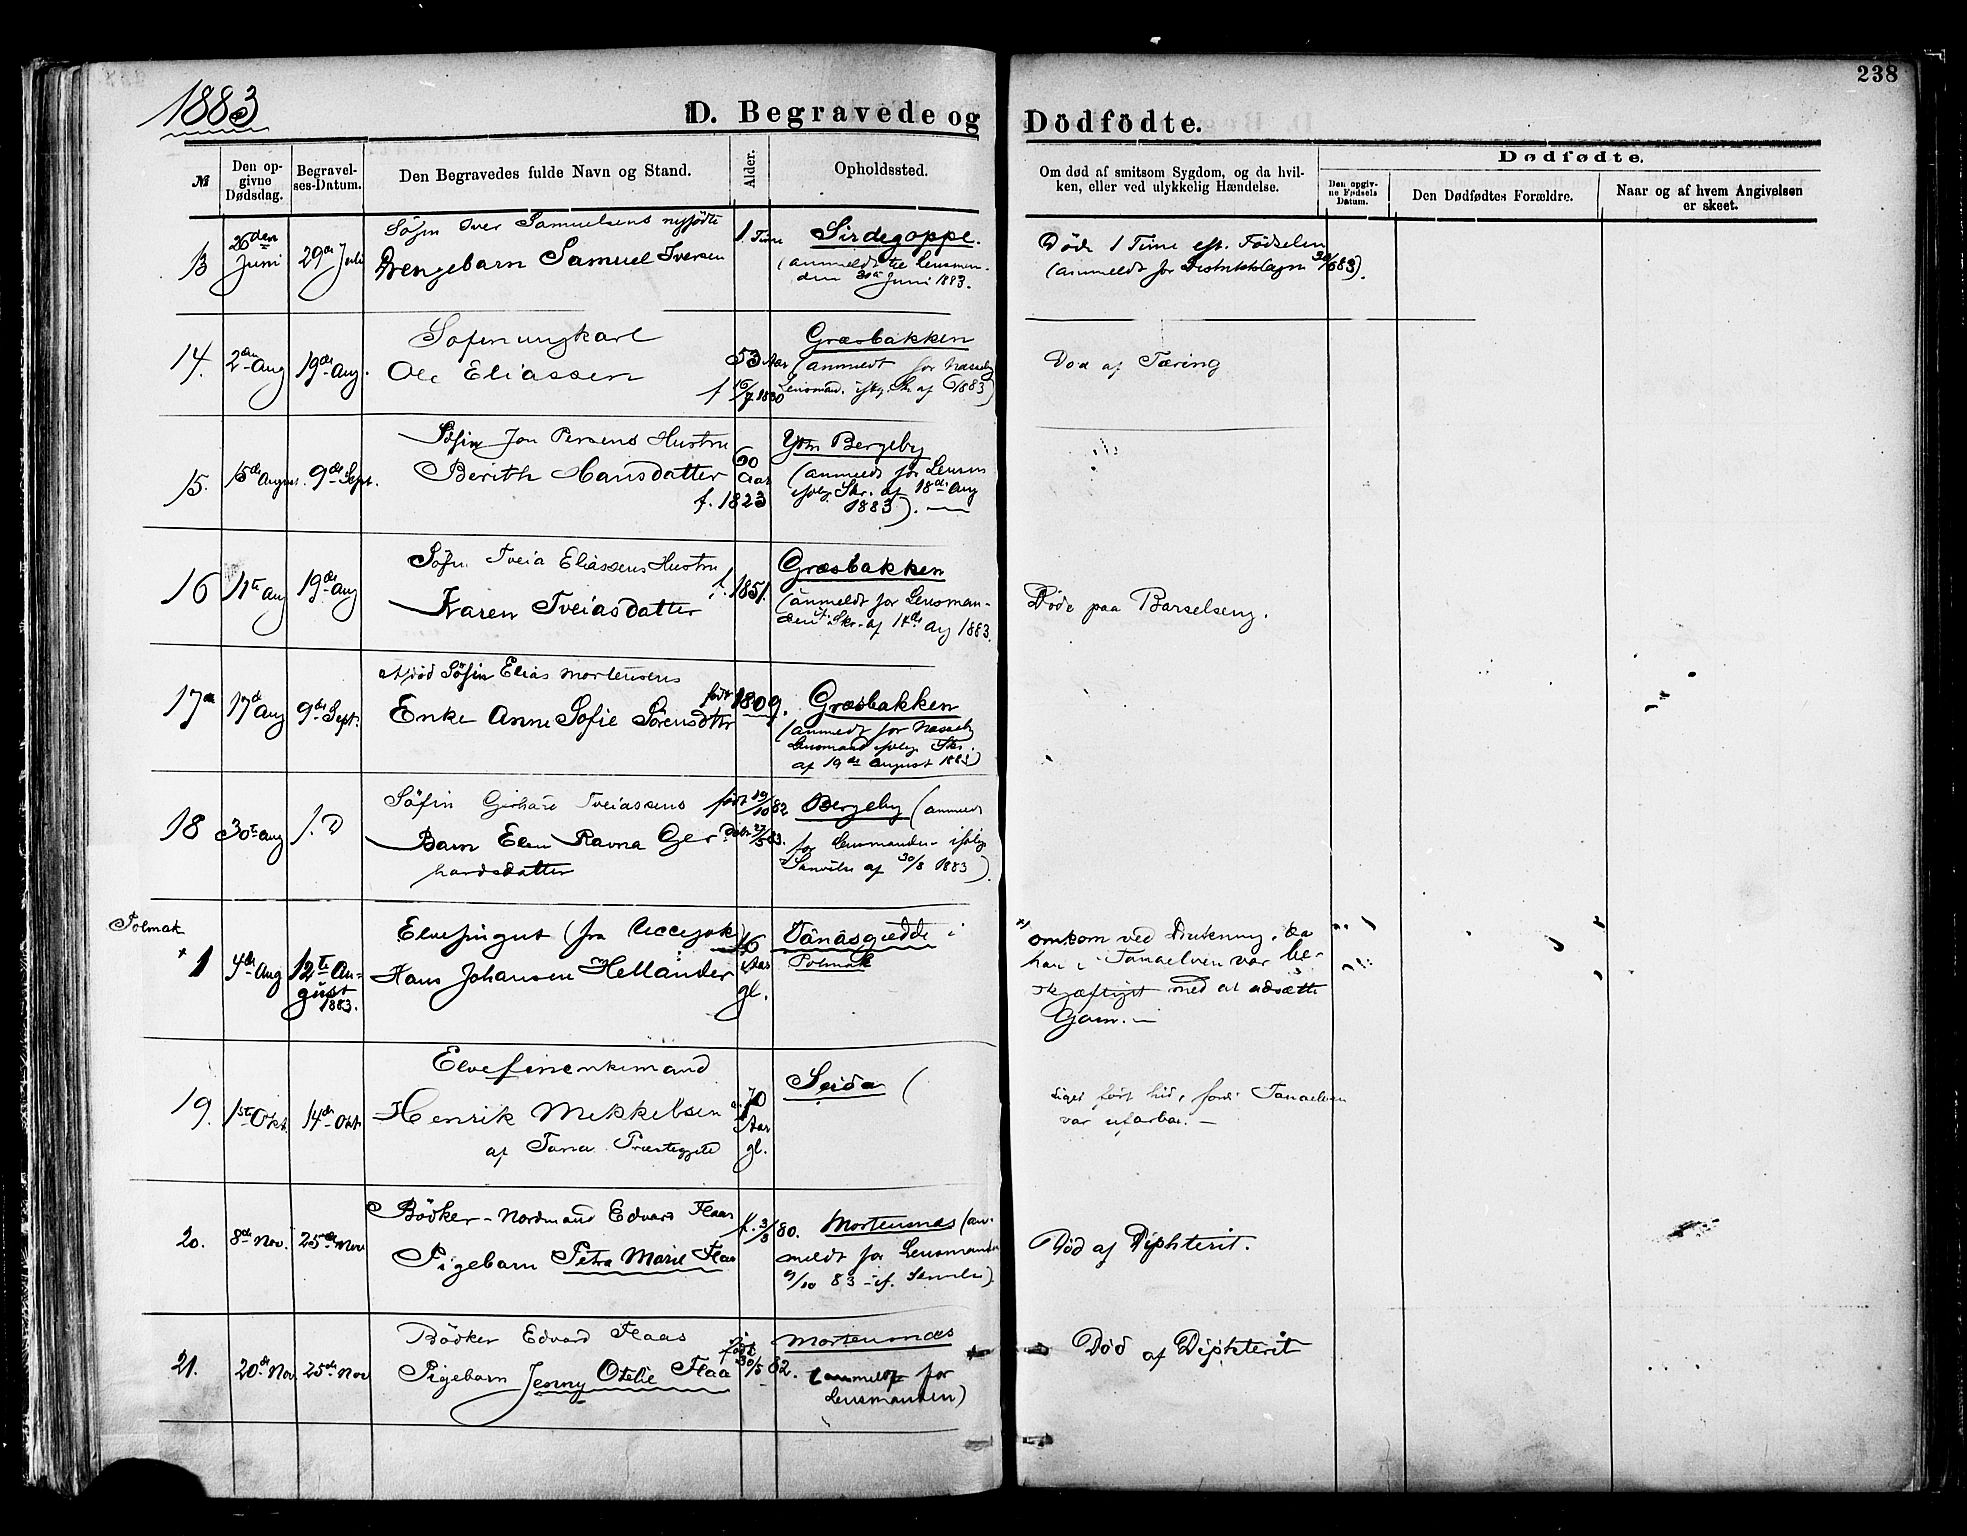 238
1883
D. Begravede og Dödfödte.
№
Den op-
givne
Dødsdag.
Begravel-
ses-Datum.
Den Begravedes fulde Navn og Stand.
Alder.
Opholdssted.
Om død af smitsom Sygdom, og da hvil-
ken, eller ved ulykkelig Hændelse.
Dødfødte.
Den opgiv-
ne Fødsels
Datum.
Den Dødfødtes Forældre.
Naar og af hvem Angivelsen
er skeet.
13
26den
Juni
29de Juli
Söfin Iver Samuelsens nyfödte
Drengebarn Samuel Iversen
1 Time
Sirdegoppe.
(anmeldt til Lensman-
den 30te Juni 1883.
Døde 1 Time eft. Födselen
(anmeldt for Distriktslægen 30/6 83).
14.
2den Aug
19de Aug.
Söfin ungkarl
Ole Eliassen
53 Aar
f 16/7 1830
Græsbakken
(anmeldt for Nasseby
Lensmand. ifølg. Skr. af 6/8 83)
Död af Tæring
15.
15de August
9de Sept.
Söfin Jon Persens Hustru
Berith Hansdatter
60
Aar
f. 1823
Ytre Bergeby
(anmeldt for Lensm
ifølg Skr. af 18de Aug
1883). —
16
11te Aug
19de Aug
Söfin Tveia Eliassens Hustru
Karen Tveiasdatter
f. 1851.
Græsbakken
(anmeldt for Lensman-
den if. Skr. af 14de Aug 1883.
Døde paa Barselseng.
17
17de Aug
9de Sept.
Afdöd Söfin Elias Mortensens
Enke Anne Sofie Sörensdtter
född 1809.
Græsbakken
(anmeldt for Nasseby
Lensmand ifølge Skr.
af 19de August 1883)
18
30te Aug
f. D
Söfin Gerhard Tveiassens
Barn Elen Ravna Ger
hardsdatter
født 19/10 82
Döbt 27/5 83.
Bergeby (anmeldt
for Lensmanden ifølge
Skrivelse af 30/8 1883).
Polmak
+ 1
4de Aug
12te Au-
gust
1883.
Elvefingut (fra Utccejok)
Hans Johansen Hellander
16
Aar
gl.
Tanasgædde i
Polmak
+) omkom ved Drukning, da
han i Tanaelven var be-
skjæftiget med at udsætte
Garn. —
19.
1ste Okt.
14de Okt
Elvefinenkemand
Henrik Mekkelsen
af Tana Præstegjeld
70
Aar
gl.
Seida (
Liget ført hid, fordi Tanaelven
var ufarbar. —
20.
8de Nov.
25de Nov
Bödker - Nordmand Edvard Flaas
Pigebarn Petra Marie Flaa
f. 3/3 80.
Mortensnæs (an-
meldt for Lensmanden
9/10 83 - if. Skrivelse)
Död af Diphterit.
21.
20de Nov
25de Nov
Bödker Edvard Flaas
Pigebarn Jenny Otelie Flaa
født
30/5 82.
Mortensnæs
(anmeldt for
Lensmanden)
Död af Diphterit